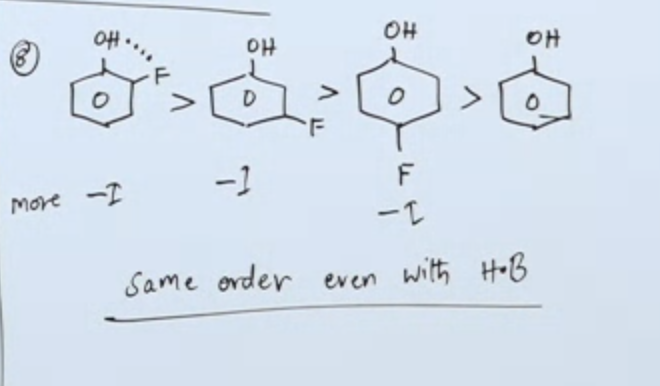 ⑧ OH OH OH OH
F > F > >
F
more -I -I -I
Same order even with H·B